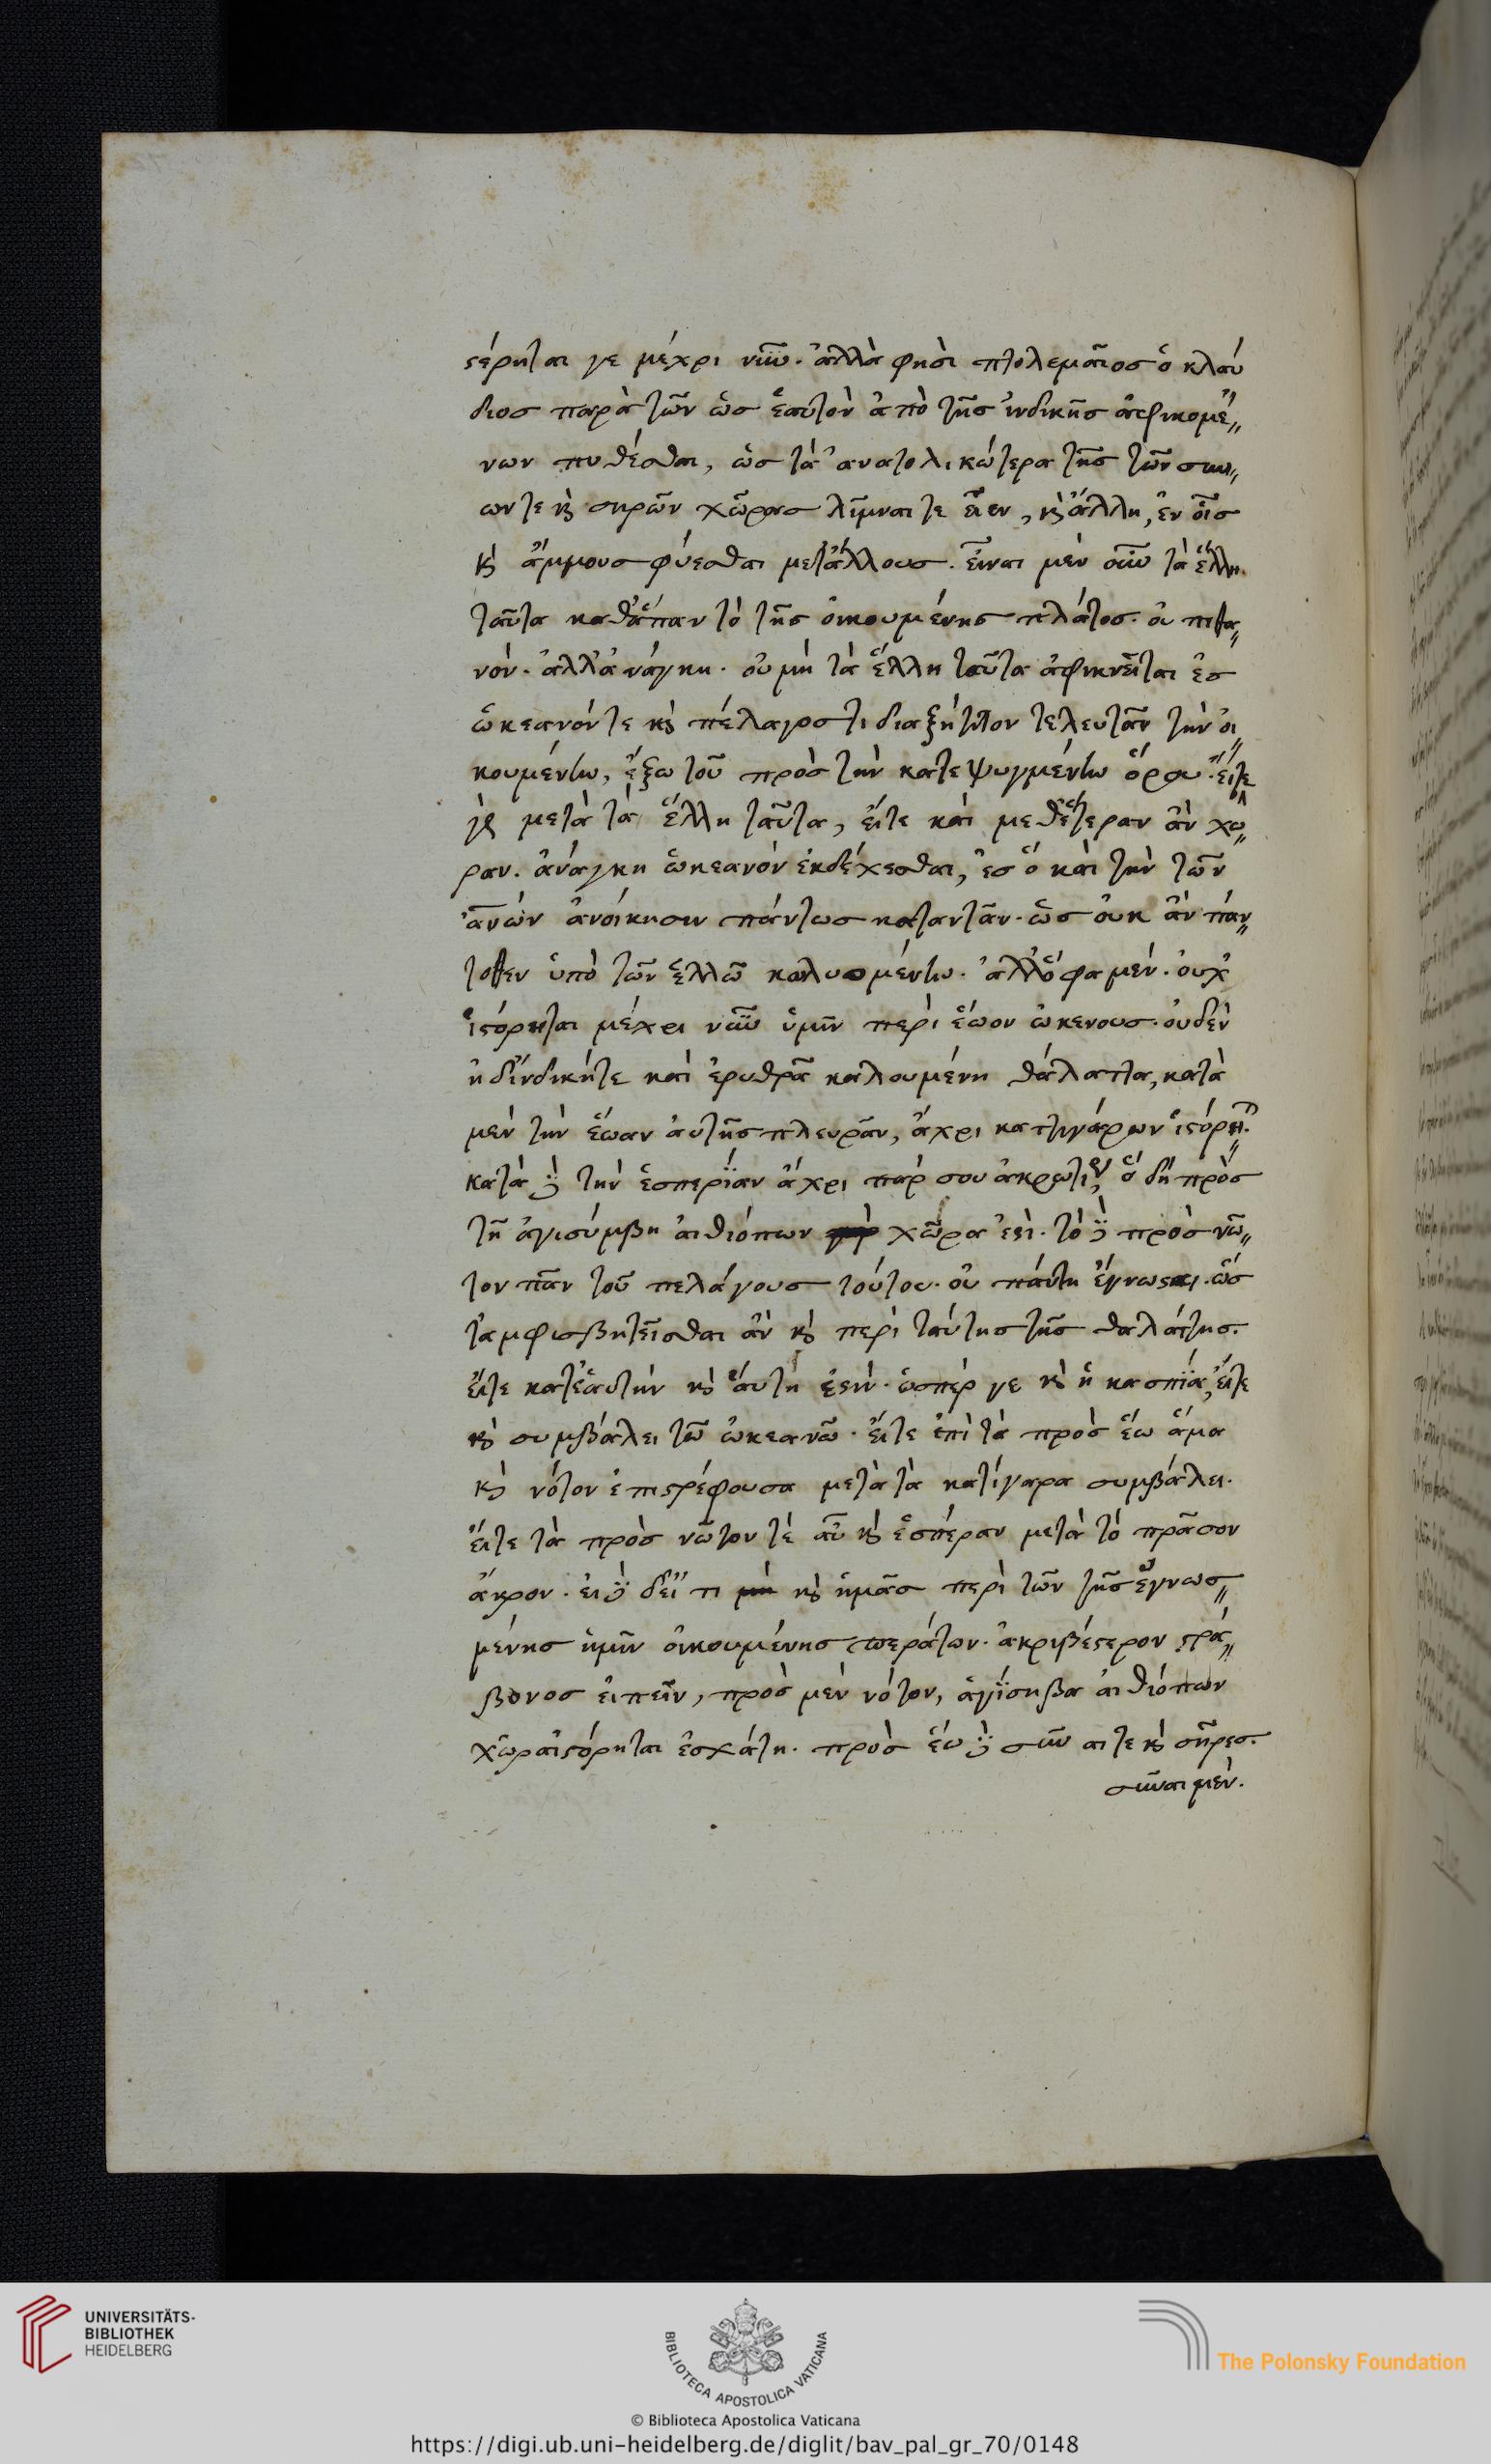 ϛόρηται γε μέχρι νῦν. ἀλλὰ φησὶ πτολεμαῖος ὁ κλαύ
διος παρὰ τῶν ὡς ἑαυτὸν ἀπὸ τῆς ἰνδικῆς ἀφικομέ„
νων πυθέσθαι, ὡς τὰ ἀνατολικώτερα τῆς τῶν σιν„
ων τε κ̀ σηρῶν χώρας λίμναι τε εἶεν, κ̀ ἄλλη, ἐν οἷς
κ̀ ἄμμους φύεσθαι μετάλλους. εἶναι μὲν οὖν τὰ ἕλλη
ταῦτα καθάπαν τὸ τῆς οἰκουμένης πλάτος. οὐ πιθα„
νὸν. ἀλλ' ἀνάγκη. οὐ μὴ τὰ ἕλλη ταῦτα ἀφικνεῖται ἐς
ὠκεανόν τε κ̀ πέλαγος τι τελευτᾶν τὴν οἰ„
κουμένην, ἔξω τοῦ πρὸς τὴν κατεψυγμένην ὅρου. εἴτε
γὰρ μετὰ τὰ ἕλλη ταῦτα, εἴτε καὶ μεθ' ἑτέραν ἂν χώ„
ραν. ἀνάγκη ὠκεανὸν ἐκδέχεσθαι, ἐς ὃ καὶ τὴν τῶν
ἀνῶν ἀνοίκησιν πάντως καταντᾶν. ὡς οὐκ ἂν πάν„
τοθεν ὑπὸ τῶν ἑλλῶν καλυομένην. ἀλλ' ὃ φαμέν. οὐχ
ἱϛόρηται μέχρι νῦν ὑμῖν περὶ ἑῶον ὠκενους. οὐδὲν
ἡ δ' ἰνδική τε καὶ ἐρυθρᾶ καλουμένη θάλαττα, κατὰ
μὲν τὴν ἑώαν αὐτῆς πλευρὰν, ἄχρι κατιγάρων ἱϛόρη„
κατὰ δὲ τὴν ἑσπερίαν ἄχρι πάρσου ἀκρωτι, ὃ δὴ πρὸς
τῇ ἀγισύμβη αἰθιόπων χώρα ἐϛὶ. τὸ δὲ πρὸς νῶ„
τον πᾶν τοῦ πελάγους τούτου. οὐ πάντη ἔγνωϛαι. ὡς
τ' ἀμφισβητεῖσθαι ἂν κ̀ περὶ ταύτης τῆς θαλάττης.
εἴτε κατ' ἑαυτὴν κ̀ αὕτη ἐϛὶν. ὥσπερ γε κ̀ ἡ κασπία, εἴτε
κ̀ συμβάλει τῷ ὠκεανῷ. εἴτε ἐπὶ τὰ πρὸς ἕω ἅμα
κ̀ νότον ἐπιϛρέφουσα μετὰ τὰ κατίγαρα συμβάλει.
εἴτε τὰ πρὸς νῶτον τὲ αὖ κ̀ ἑσπέραν μετὰ τὸ πρᾶσον
ἄκρον. εἰ δὲ δεῖ τι κ̀ ἡμᾶς περὶ τῶν τῆς ἐγνωσ„
μένης ἡμῖν οἰκουμένης περάτων. ἀκριβέϛερον ϛρά„
βωνος εἰπεῖν, πρὸς μὲν νότον, ἀγίσηβα αἰθιόπων
χώρα ἱϛόρηται ἐσχάτη. πρὸς ἕω δὲ σῖν αι τε κ̀ σῆρες.
σῖναι μὲν.
UNIVERSITÄTS-
BIBLIOTHEK
HEIDELBERG
BIBLIOTECA APOSTOLICA VATICANA
The Polonsky Foundation
© Biblioteca Apostolica Vaticana
https://digi.ub.uni-heidelberg.de/diglit/bav_pal_gr_70/0148